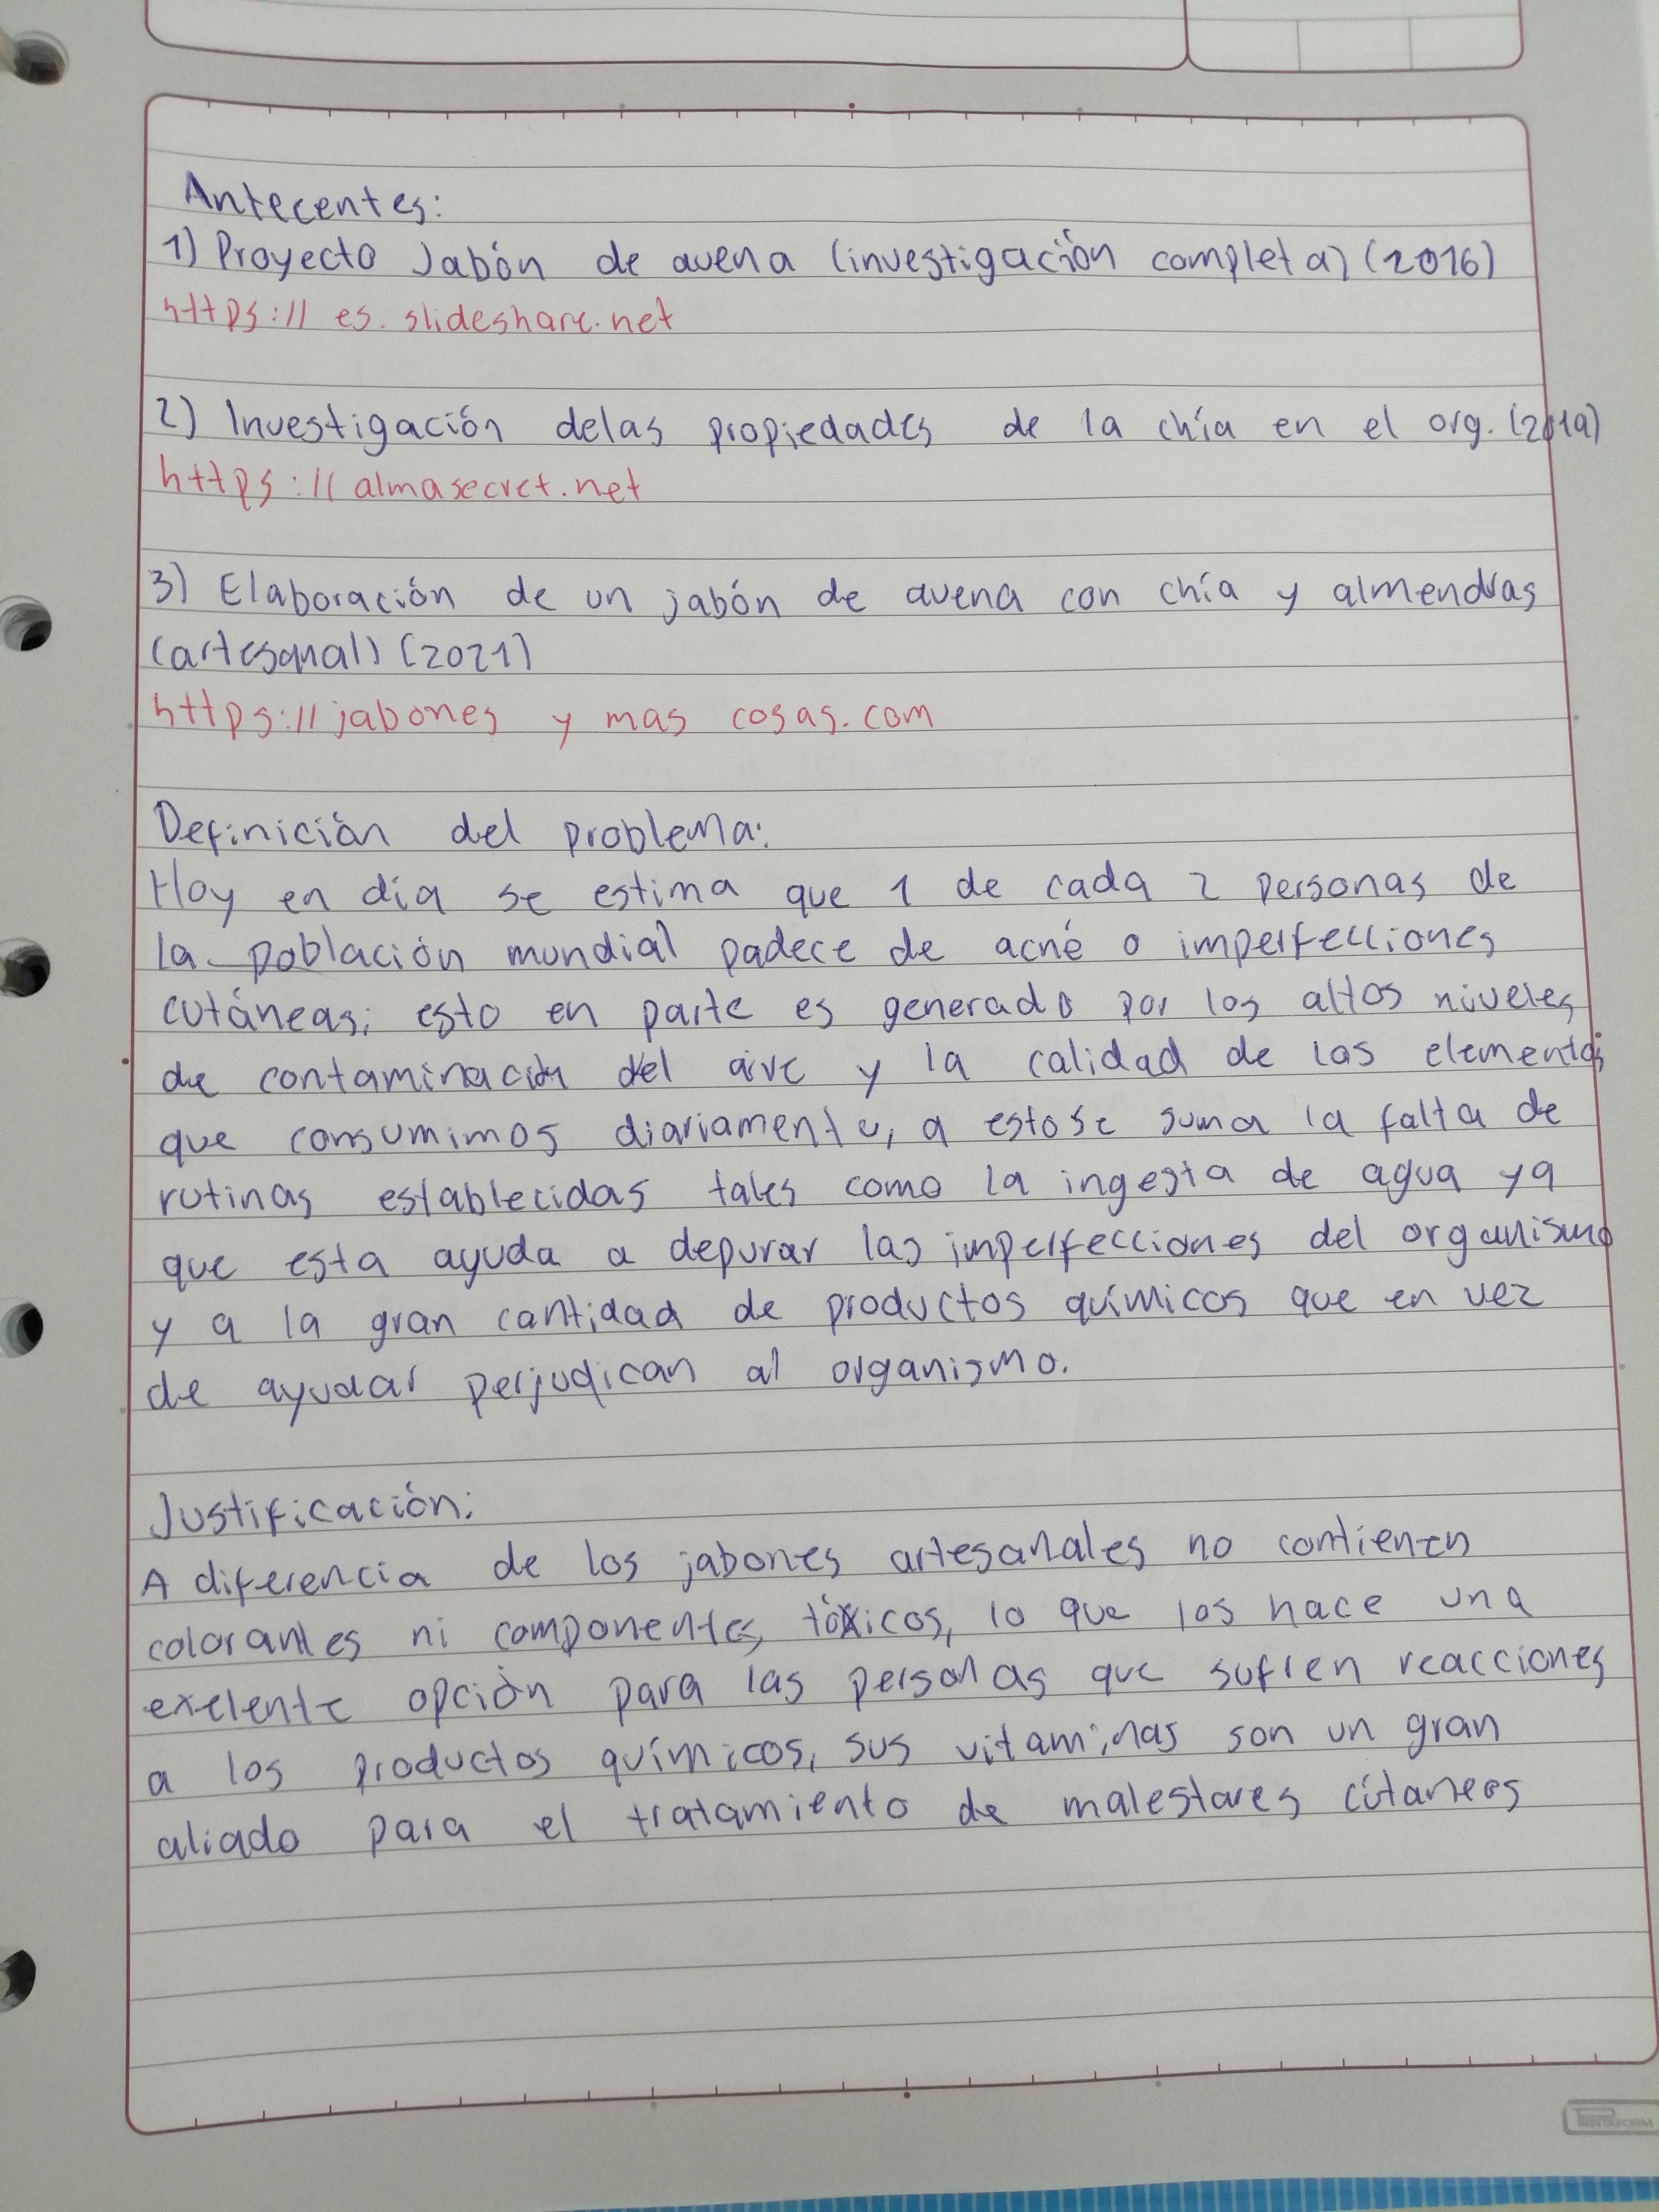 Antecentes:
1) Proyecto Jabón de avena (investigación completa) (2016)
https:// es. slideshare.net
2) Investigación delas propiedades de la chía en el org. (2019)
https://almasecret.net
3) Elaboración de un jabón de avena con chía y almendras
(artesanal) (2021)
https://jabones y mas cosas.com
Definición del problema:
Hoy en día se estima que 1 de cada 2 personas de
la población mundial padece de acné o imperfecciones
cutáneas; esto en parte es generado por los altos niveles
de contaminación del aire y la calidad de los elementos
que consumimos diariamente, a esto se suma la falta de
rutinas establecidas tales como la ingesta de agua ya
que esta ayuda a depurar las imperfecciones del organismo
y a la gran cantidad de productos químicos que en vez
de ayudar perjudican al organismo.
Justificación:
A diferencia de los jabones artesanales no contienen
colorantes ni componentes tóxicos, lo que los hace una
exelente opción para las personas que sufren reacciones
a los productos químicos, sus vitaminas son un gran
aliado para el tratamiento de malestares cútaneos
PRINTAFORM